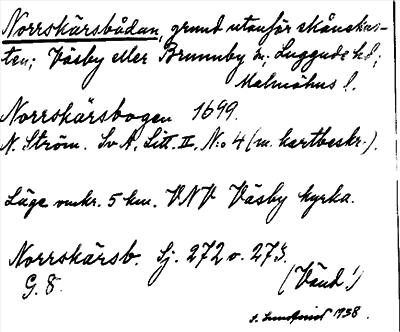 Norrskärsbådan, grund utanför skånekus-
ten; Väsby eller Brunnby sn; Luggude hd;
Malmöhus l.
Norrskärsbogen 1699.
N. Ström. Sv A, Litt. II, N:o 4 (m. kartbeskr.).
Läge omkr. 5 km. VNV Väsby kyrka.
Norrskärsb. Sj. 272 o. 273.
G. 8. (Vänd!)
Lundqvist 1938.